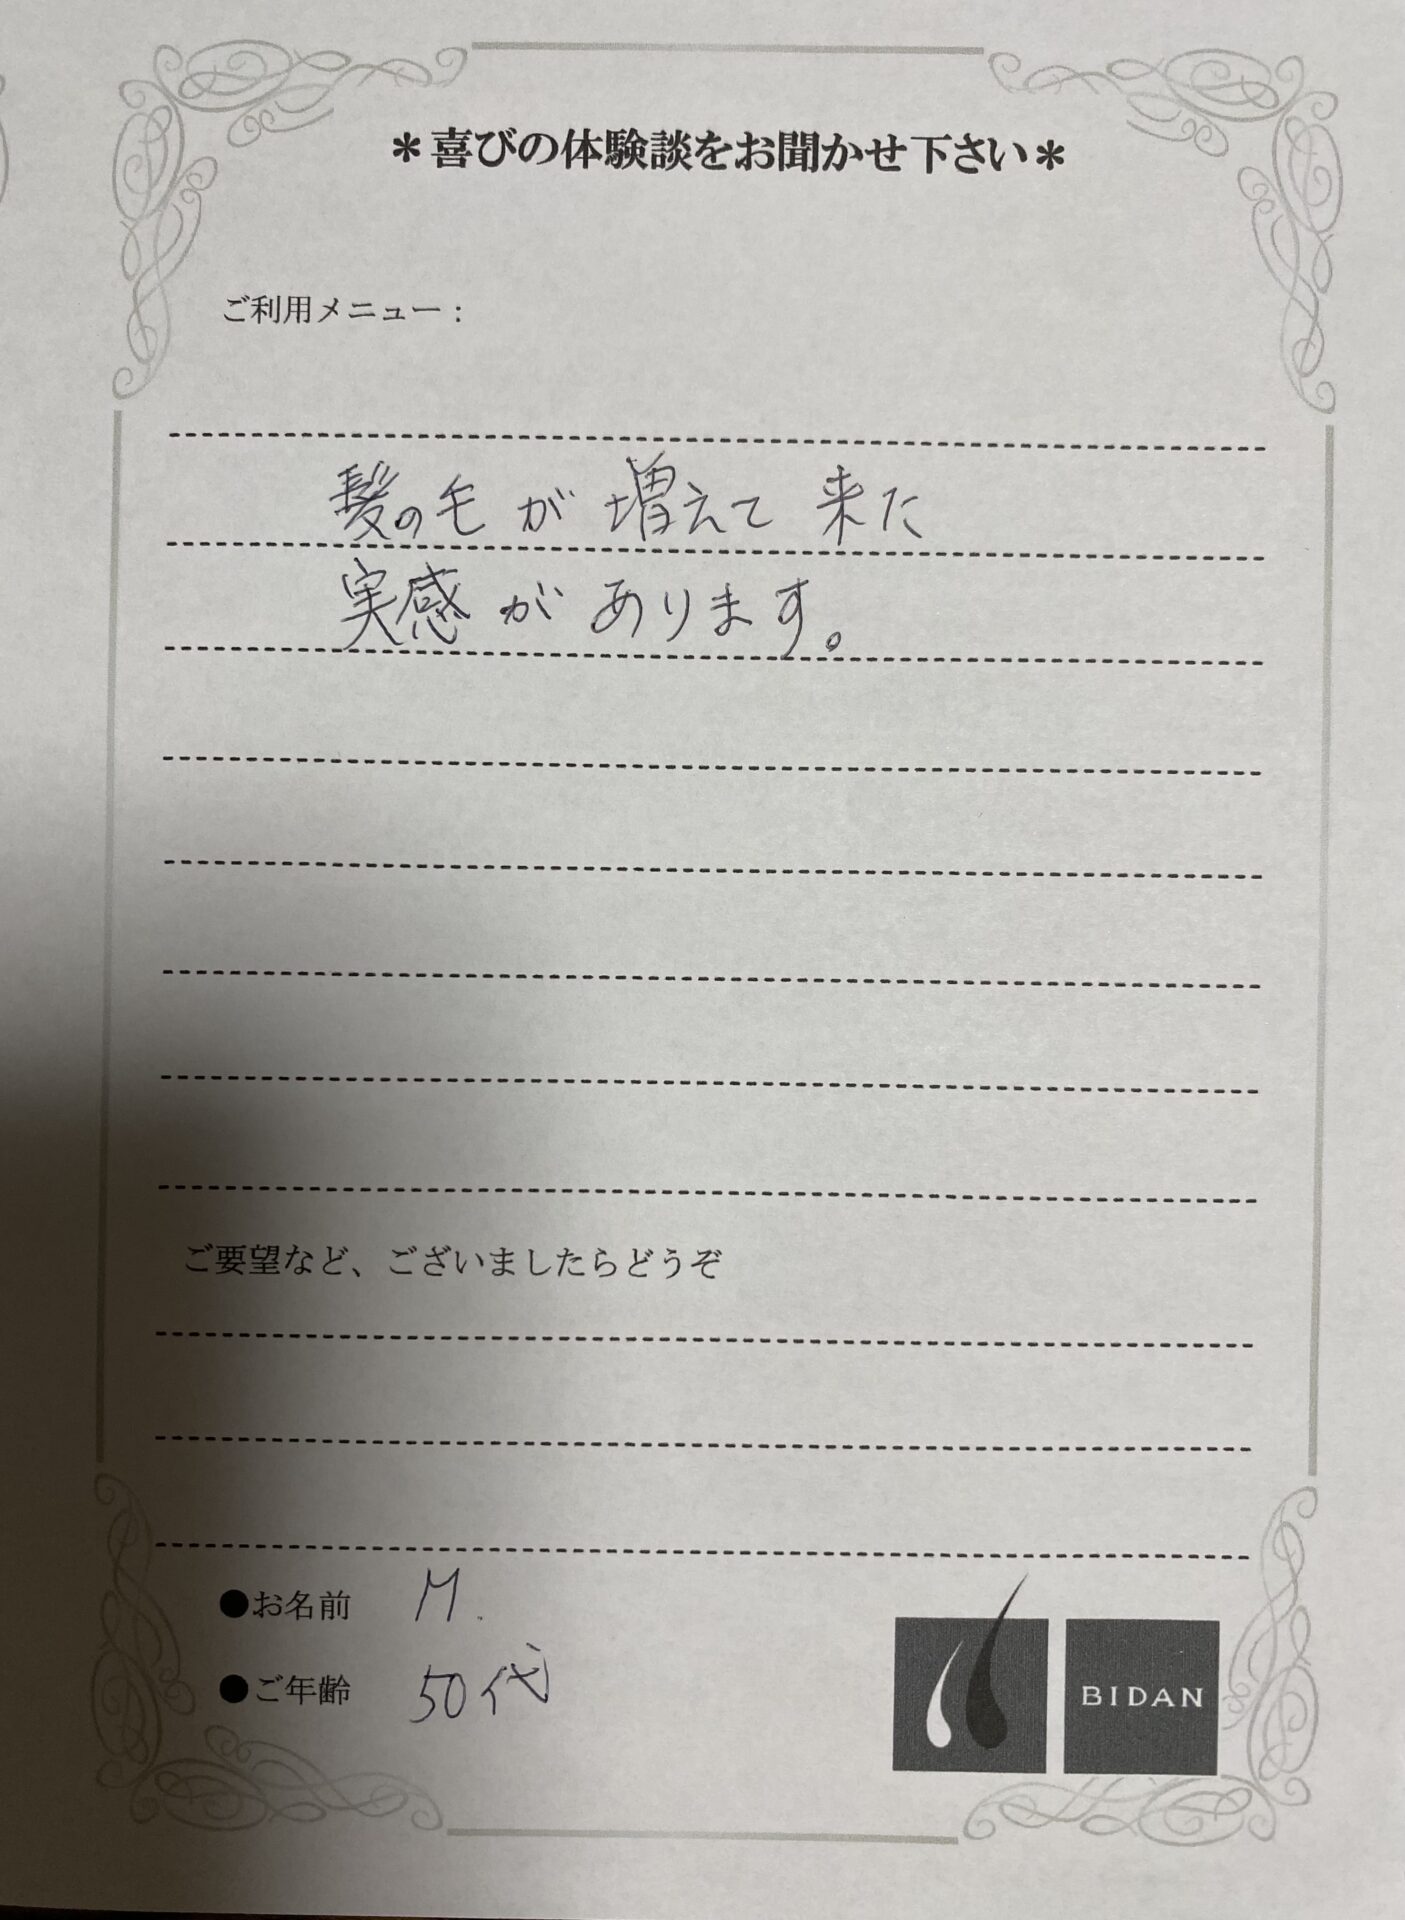 ＊喜びの体験談をお聞かせ下さい＊
ご利用メニュー：
髪の毛が増えて来た
実感があります。
ご要望など、ございましたらどうぞ
●お名前 M.
●ご年齢 50代
BIDAN